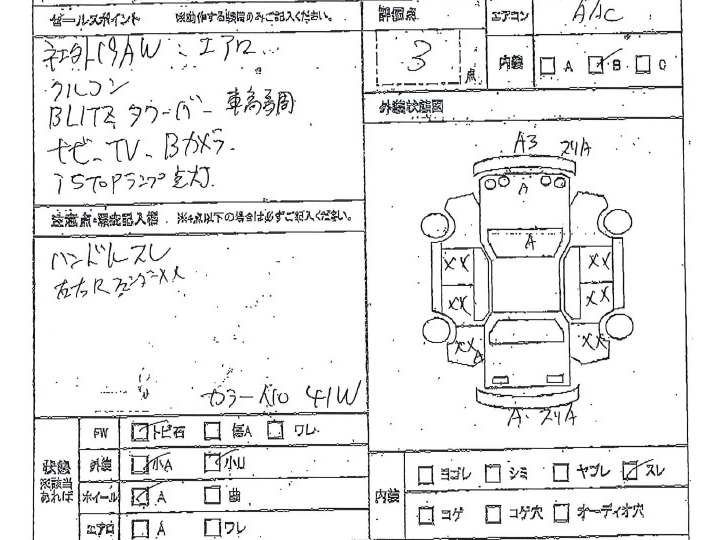 セールスポイント ※動作する装備のみご記入ください。
社外19AW、エアロ
クルコン
BLITZ タワーバー 車高調
ナビ、TV、Bカメラ
iSTOPランプ点灯
評価点
3 点
エアコン AAC
内装 □A ☑B □C
外装状態図
A3 スリA
A
A
XX XX
XX XX
XX A XX
A・スリA
注意点・瑕疵記入欄 ※4点以下の場合は必ずご記入ください。
ハンドルスレ
左右Rフェンダーxx
カラーNo 41W
状態 ※該当あれば
FW ☑トビ石 □傷A □ワレ
外装 ☑小A ☑小U
ホイール ☑A □曲
エアロ □A □ワレ
内装 □ヨゴレ □シミ □ヤブレ ☑スレ
□コゲ □コゲ穴 □オーディオ穴